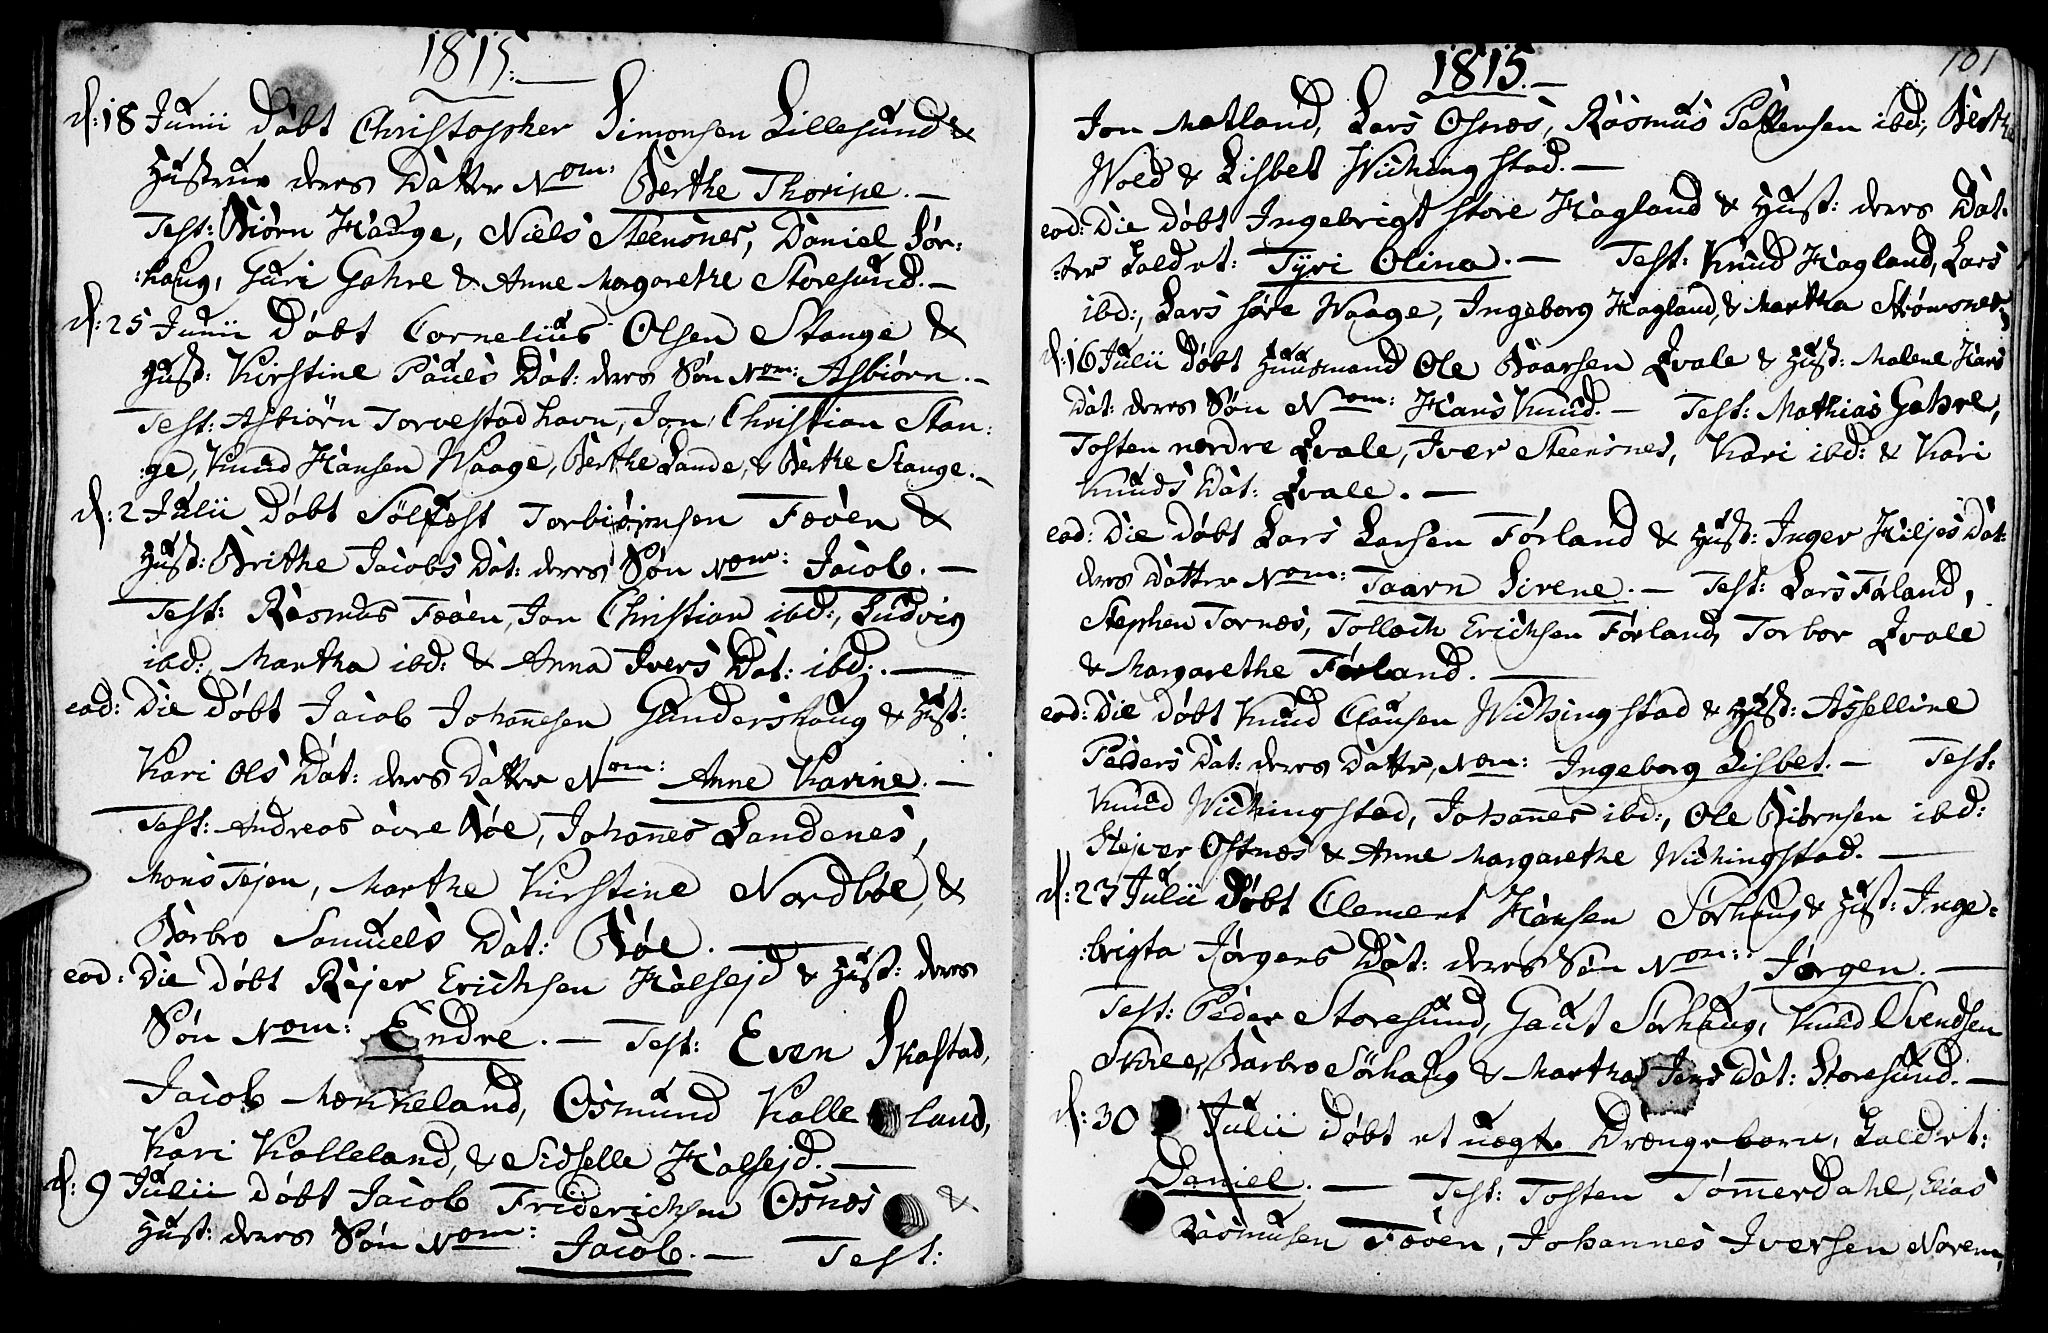 1815.
d: 18 Junii Døbt Christopher Simonsen Lillesund &
Hustrue deres Datter Nom: Berthe Thorine. —
Test: Biørn Hauge, Niels Steensnes, Daniel Sør:
:haug, Guri Gahre & Anne Margarethe Storesund. —
d: 25 Junii Døbt Cornelius Olsen Stange &
Hust: Kirstine Pauls Dat: deres Søn Nom: Asbiørn. —
Test: Asbiørn Torvestad havn, Jon Christian Stan:
:ge, Knud Hansen Waage, Berthe Lande, & Berthe Stange. —
d: 2 Julii Døbt Sølfæst Torbiørnsen Fæøen &
Hust: Brithe Jacobs Dat: deres Søn Nom: Jacob. —
Test: Rasmus Fæøen, Jon Christian ibd:, Ludvig
ibd:, Martha ibd: & Anna Ivers Dat: ibd:. —
eod: Die Døbt Jacob Johannesen Gundershaug & Hust:
Kari Ols Dat: deres Datter Nom: Anne Karine. —
Test: Andreas øvre Bøe, Johannes Landenes,
Mons Tejen, Marthe Kirstine Nordbøe, &
Barbro Samuels Dat: Bøe. —
eod: Die Døbt Rejer Erichsen Halsejd & Hust: deres
Søn Nom: Endre. — Test: Even Skastad,
Jacob Mænneland, Osmund Kalle land,
Kari Kalleland, & Sidselle Halsejd. —
d: 9 Julii Døbt Jacob Friderichsen Osnæs &
Hust: deres Søn Nom: Jacob. — Test:
101
1815. —
Jon Matland, Lars Osnæs, Rasmus Pettersen ibd:, Berthe
Wold & Lisbet Wichingstad. —
eod: Die Døbt Ingebrigt store Hagland & Hust: deres Dat:
:ter kaldet: Tyri Olina. — Test: Knud Hagland, Lars
ibd:, Lars søre Waage, Ingeborg Hagland, & Martha Strømsnes
d: 16 Julii Døbt Huusmand Ole Baarsen Qvale & Hust: Malene Hans
Dat: deres Søn Nom: Hans Knud. — Test: Mathias Gahre,
Tosten nordre Qvale, Iver Steensnes, Kari ibd: & Kari
Knuds Dat: Qvale. —
eod: Die Døbt Lars Larsen Førland & Hust: Inger Kiljes Dat:
deres Datter Nom: Taarn Sirene. — Test: Lars Førland,
Stephen Tornæs, Tollach Erichsen Førland, Torbor Qvale
& Margarethe Førland. —
eod: Die Døbt Knud Clausen Wichingstad & Hust: Asselline
Peders Dat: deres Datter, Nom: Ingeborg Lisbet. — Test:
Knud Wichingstad, Johannes ibd:, Ole Biørnsen ibd:
Stejver Ostnæs & Anne Margarethe Wichingstad. —
d: 23 Julii Døbt Clement Hansen Sørhaug & Hust: Inge:
:brigta Jørgens Dat: deres Søn Nom: Jørgen. —
Test: Peder Storesund, Gaut Sørhaug, Knud Svendsen
Skree, Barbro Sørhaug & Martha Jens Dat: Storesund. —
d: 30 Julii Døbt et uægte Drængebarn, kaldet:
Daniel. — Test: Tosten Tømmerdahl, Elias
Rasmusen Fæøen, Johannes Iversen Norem,